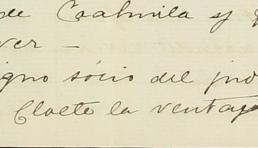 de Coahuila y
ver —
igno sócio del
Cloete la ventaja